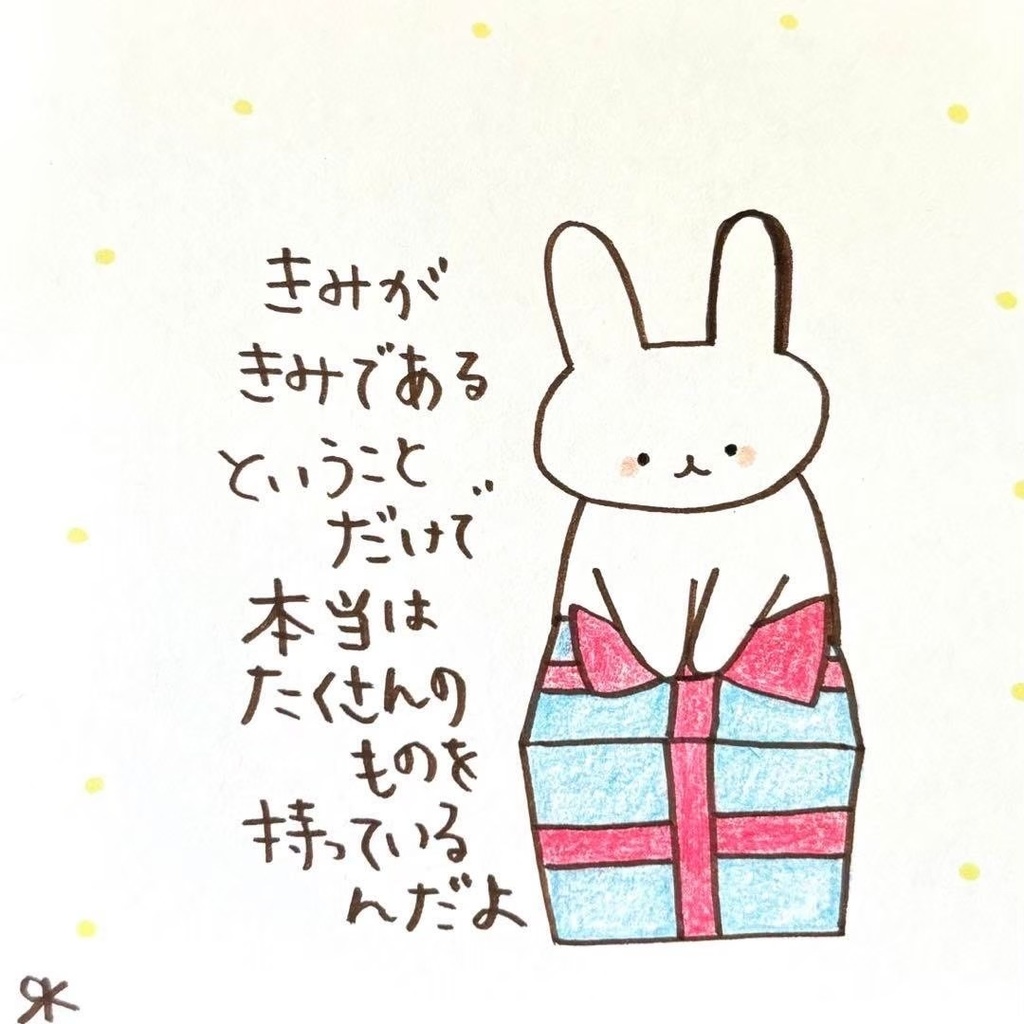 きみが
きみである
ということ
だけで
本当は
たくさんの
ものを
持っている
んだよ